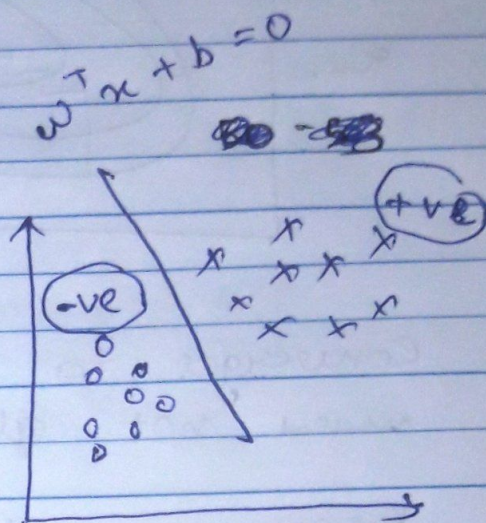 wᵀx + b = 0
+ve
-ve